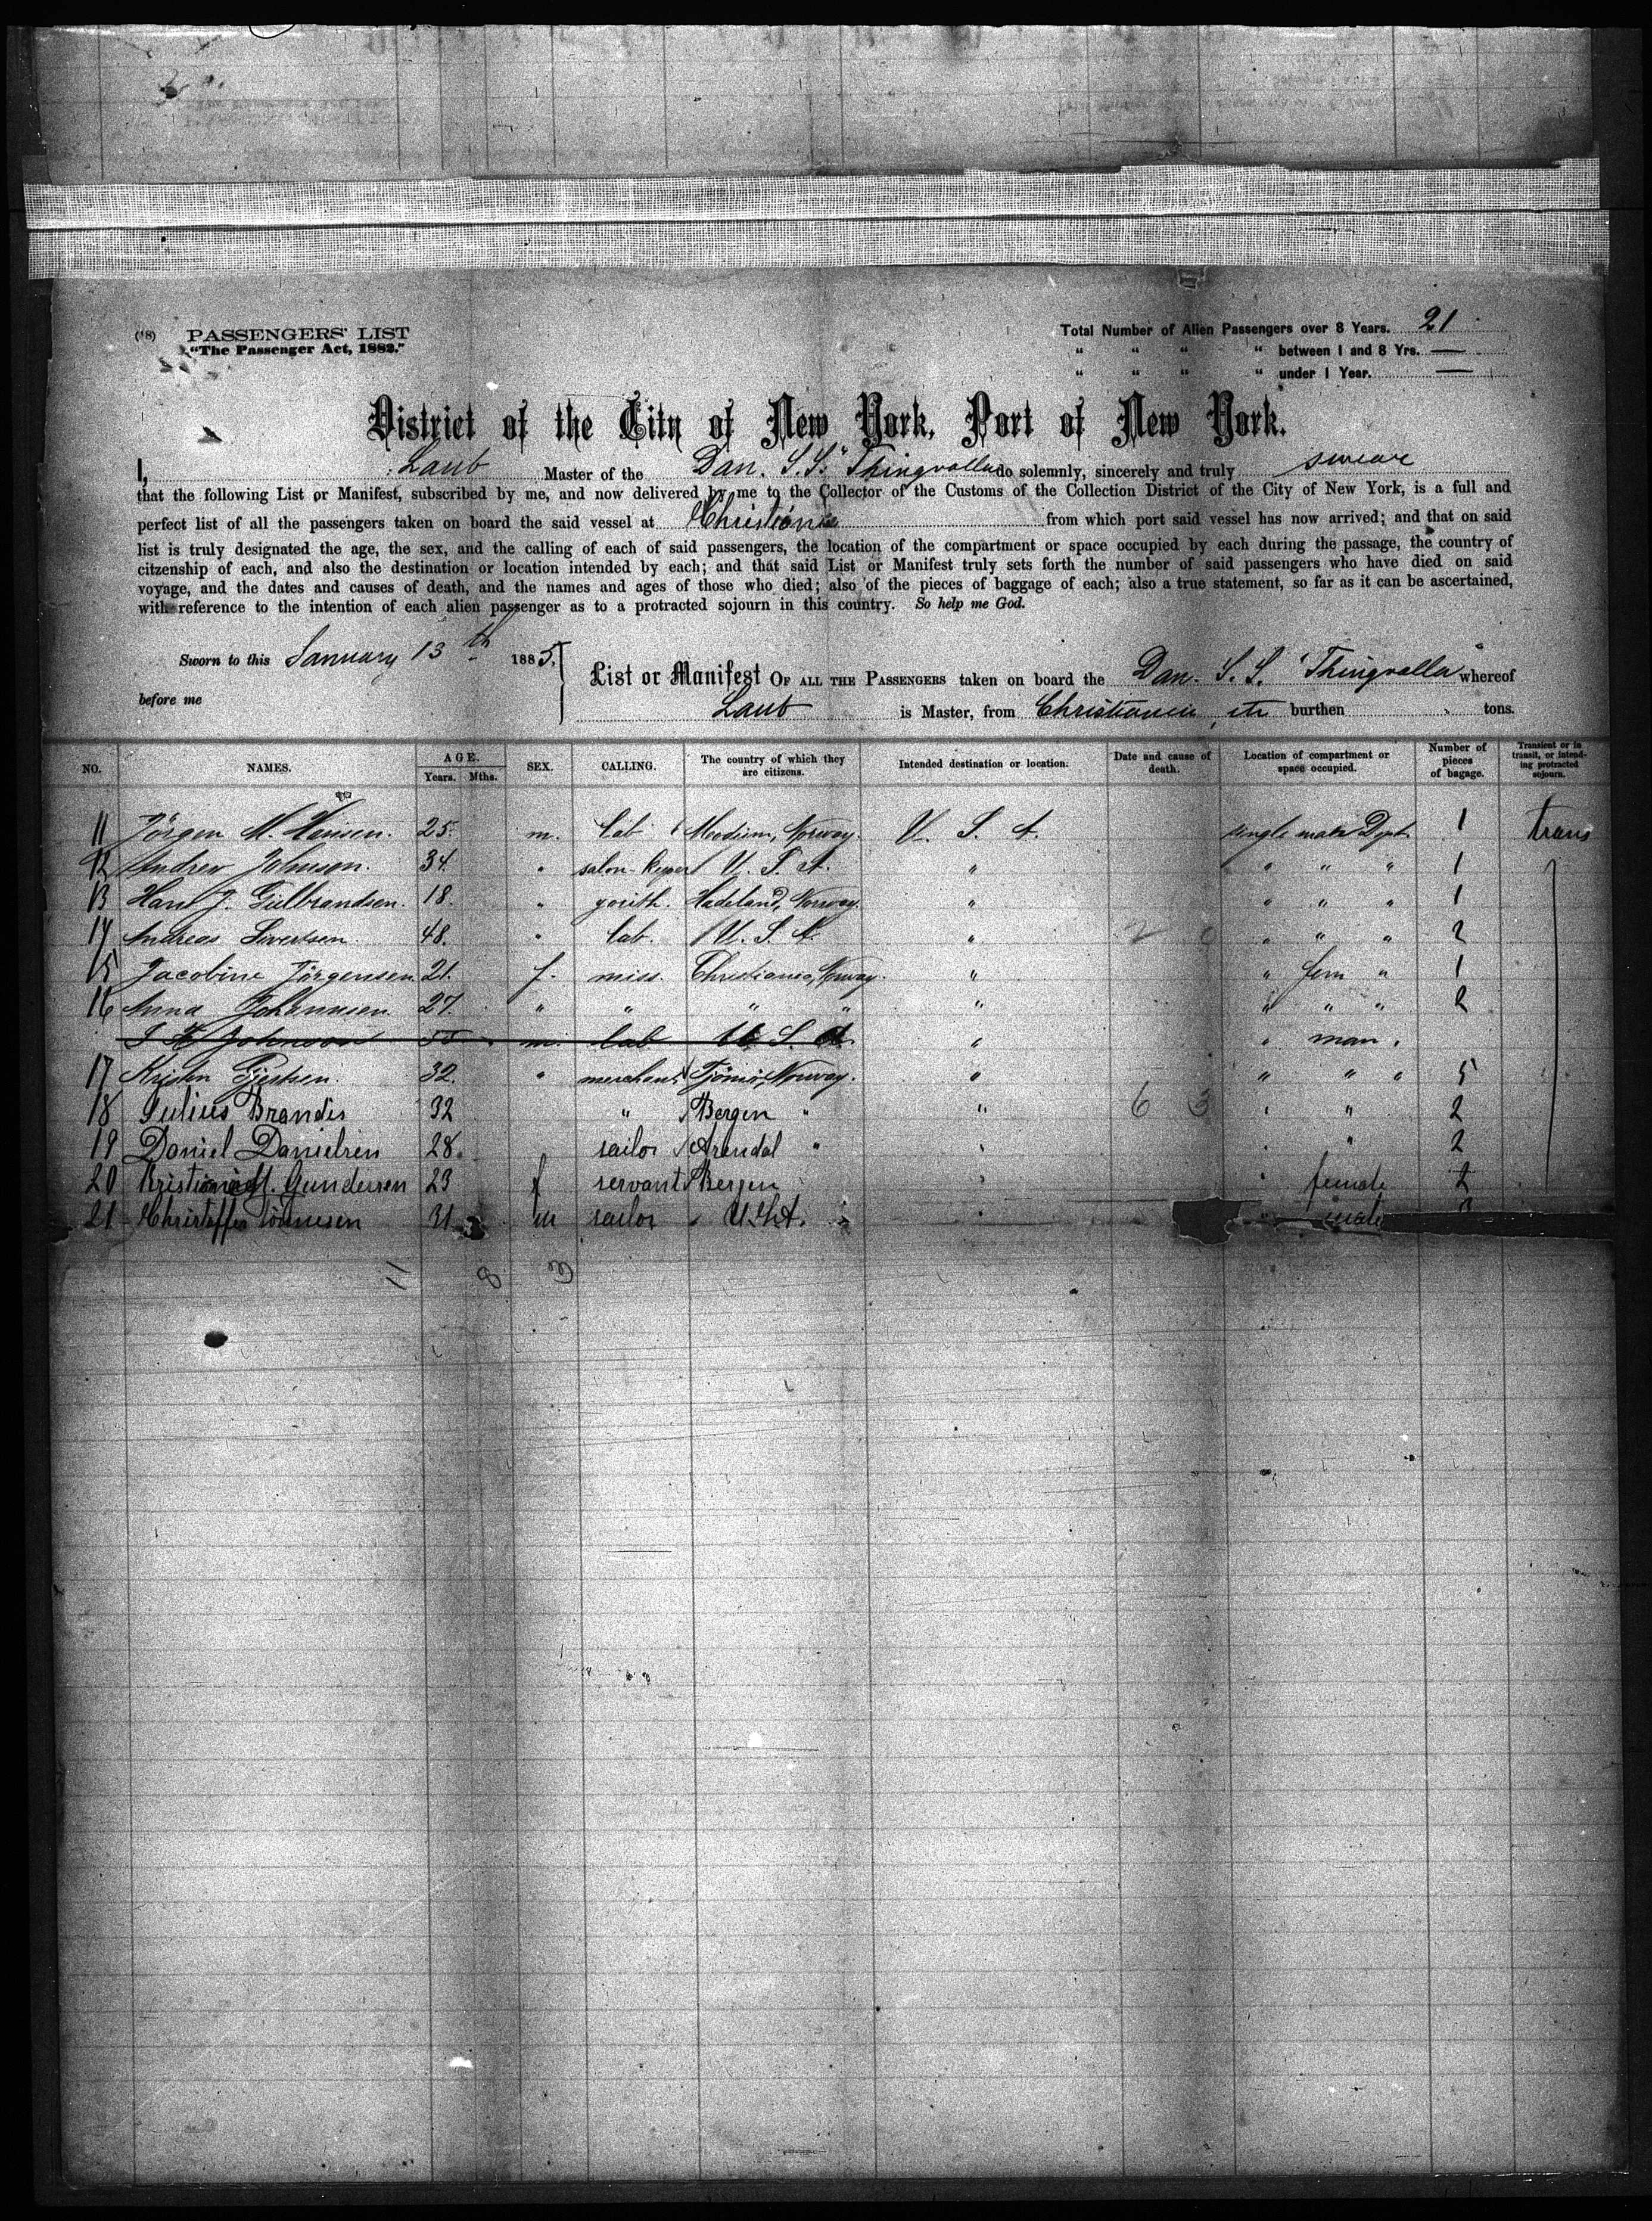 (18) PASSENGERS' LIST
"The Passenger Act, 1882."
Total Number of Alien Passengers over 8 Years. 21
" " " " between 1 and 8 Yrs. —
" " " " under 1 Year. —
District of the City of New York, Port of New York.
I, Laub Master of the Dan. S.S. "Thingvalla" do solemnly, sincerely and truly swear
that the following List or Manifest, subscribed by me, and now delivered by me to the Collector of the Customs of the Collection District of the City of New York, is a full and
perfect list of all the passengers taken on board the said vessel at Christiania from which port said vessel has now arrived; and that on said
list is truly designated the age, the sex, and the calling of each of said passengers, the location of the compartment or space occupied by each during the passage, the country of
citzenship of each, and also the destination or location intended by each; and that said List or Manifest truly sets forth the number of said passengers who have died on said
voyage, and the dates and causes of death, and the names and ages of those who died; also of the pieces of baggage of each; also a true statement, so far as it can be ascertained,
with reference to the intention of each alien passenger as to a protracted sojourn in this country. So help me God.
Sworn to this January 13th 1885,
before me
List or Manifest OF ALL THE PASSENGERS taken on board the Dan. S. S. "Thingvalla" whereof
Laub is Master, from Christiania, etc burthen tons.
NO. NAMES. AGE. Years. Mths. SEX. CALLING. The country of which they are citizens. Intended destination or location. Date and cause of death. Location of compartment or space occupied. Number of pieces of bagage. Transient or in transit, or intending protracted sojourn.
11 Jörgen M. Hansen. 25. m. lab Modum, Norway. U. S. A. single male Dpt. 1 trans
12 Andrew Johnson. 34. " salon-keeper U. S. A. " " " " 1
13 Hans J. Gulbrandsen. 18. " youth. Hadeland, Norway. " " " " 1
14 Andreas Sivertsen. 48. " lab. U. S. A. " 2 0 " " " 2
15 Jacobine Jörgensen 21. f. miss. Christiania, Norway. " " fem " 1
16 Anna Johannsen 27. " " " " " " " " 2
Johnson 55 m. lab U. S. A. " " man "
17 32. " merchant Tjömö, Norway. " " " " 5
18 Julius Brandis 32 " Bergen " " 6 3 " " 2
19 Daniel Danielsen 28. sailor Arendal " " " " 2
20 Gundersen 23 f servant Bergen " " female 2
21 Christoffer Tönnesen 31 m sailor U.S.A. " " male
11 8 3